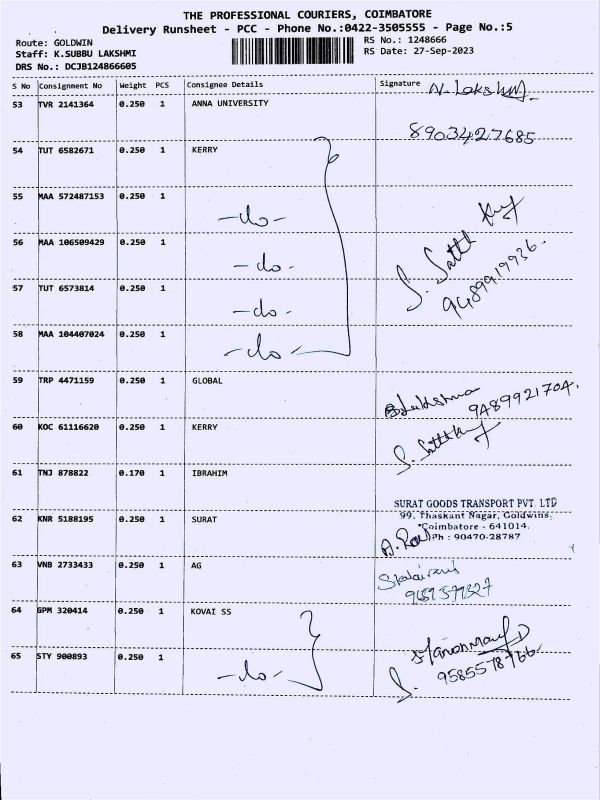 THE PROFESSIONAL COURIERS, COIMBATORE
Delivery Runsheet - PCC - Phone No.:0422-3505555 - Page No.:5
Route: GOLDWIN
RS No.: 1248666
Staff: K.SUBBU LAKSHMI
RS Date: 27-Sep-2023
DRS No.: DCJB124866605
S No Consignment No Weight PCS Consignee Details Signature
53 TVR 2141364 0.250 1 ANNA UNIVERSITY N. Lakshmi
8903427685
54 TUT 6582671 0.250 1 KERRY
55 MAA 572487153 0.250 1 -do-
56 MAA 106509429 0.250 1 -do-
57 TUT 6573814 0.250 1 -do-
9489919936
58 MAA 104407024 0.250 1 -do-
59 TRP 4471159 0.250 1 GLOBAL
9489921704
60 KOC 61116620 0.250 1 KERRY
61 TNJ 878822 0.170 1 IBRAHIM
SURAT GOODS TRANSPORT PVT. LTD
62 KNR 5188195 0.250 1 SURAT 99, Thaskant Nagar, Goldwins,
Coimbatore - 641014.
Ph : 90470-28787
63 VNB 2733433 0.250 1 AG
64 GPM 320414 0.250 1 KOVAI SS
65 STY 900893 0.250 1 -do-
9585578766